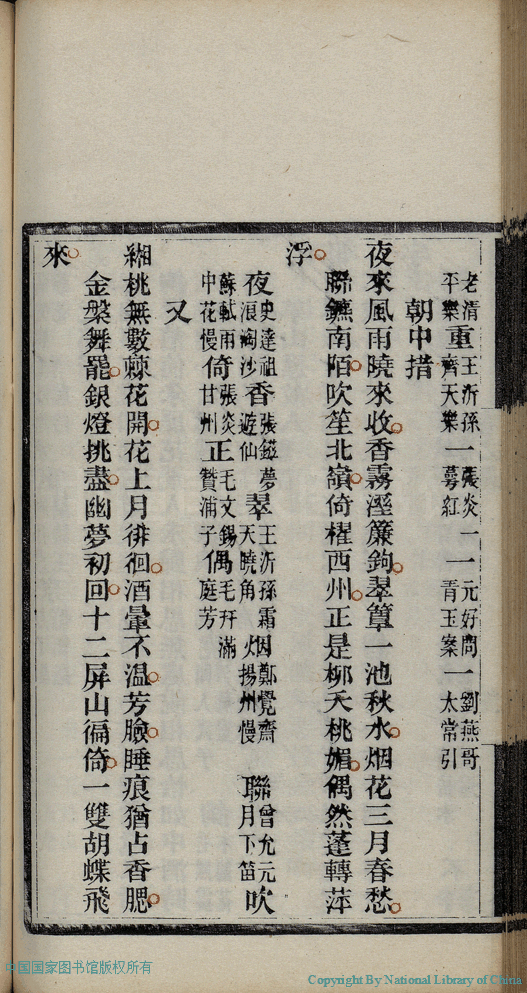 老清平樂重王沂孫齊天樂一張炎一蕚紅一元好問青玉案一劉燕哥太常引
朝中措
夜來風雨曉來收香霧溼簾鉤翠簟一池秋水烟花三月春愁
聯鑣南陌吹笙北嶺倚櫂西州正是柳夭桃媚偶然蓬轉萍
浮
夜史達祖浪淘沙香張鎡夢遊仙翠王沂孫霜天曉角烟鄭覺齋揚州慢聯曾允元月下笛吹
蘇軾雨中花慢倚張炎甘州正毛文錫贊浦子偶毛幵滿庭芳
又
緗桃無數棘花開花上月徘徊酒暈不溫芳臉睡痕猶占香腮
金槃舞罷銀燈挑盡幽夢初回十二屏山徧倚一雙胡蝶飛
來
中国国家图书馆版权所有
Copyright By National Library of China